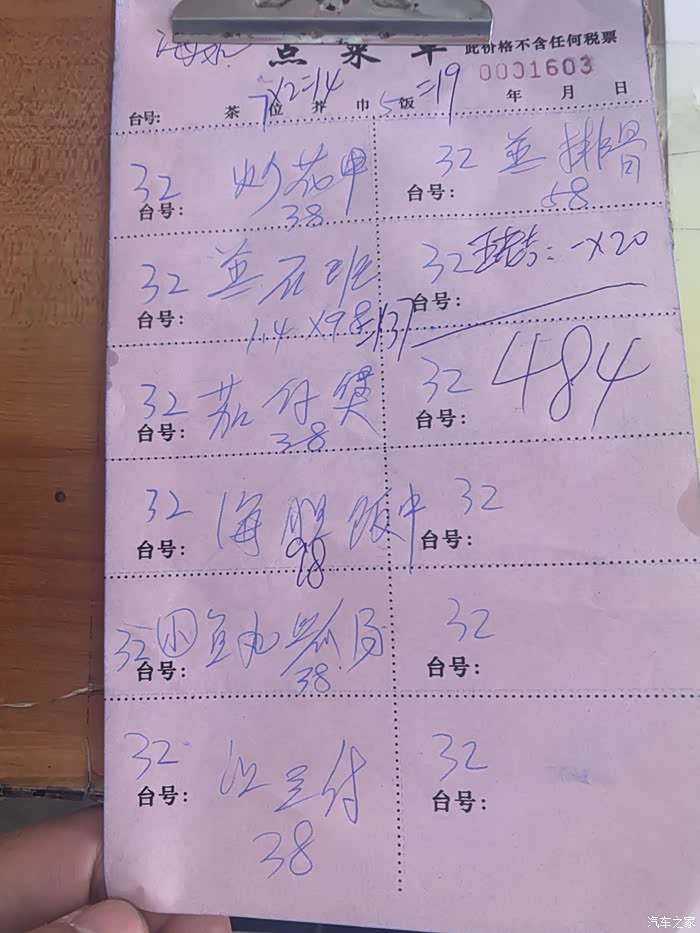 点菜单 此价格不含任何税票
0031603
7×2=14 5 =19
台号: 茶位 芥 巾 饭 年 月 日
32 炒花甲
台号: 38
32 蒸排骨
台号: 58
32 蒸石班
台号: 1.4×98=137
32 一×20
台号:
32 茄付煲
台号: 38
32 484
台号:
32 海胆饭中
台号: 98
32
台号:
32 小 鱼丸
台号: 38
32
台号:
32
台号: 38
32
台号:
汽车之家